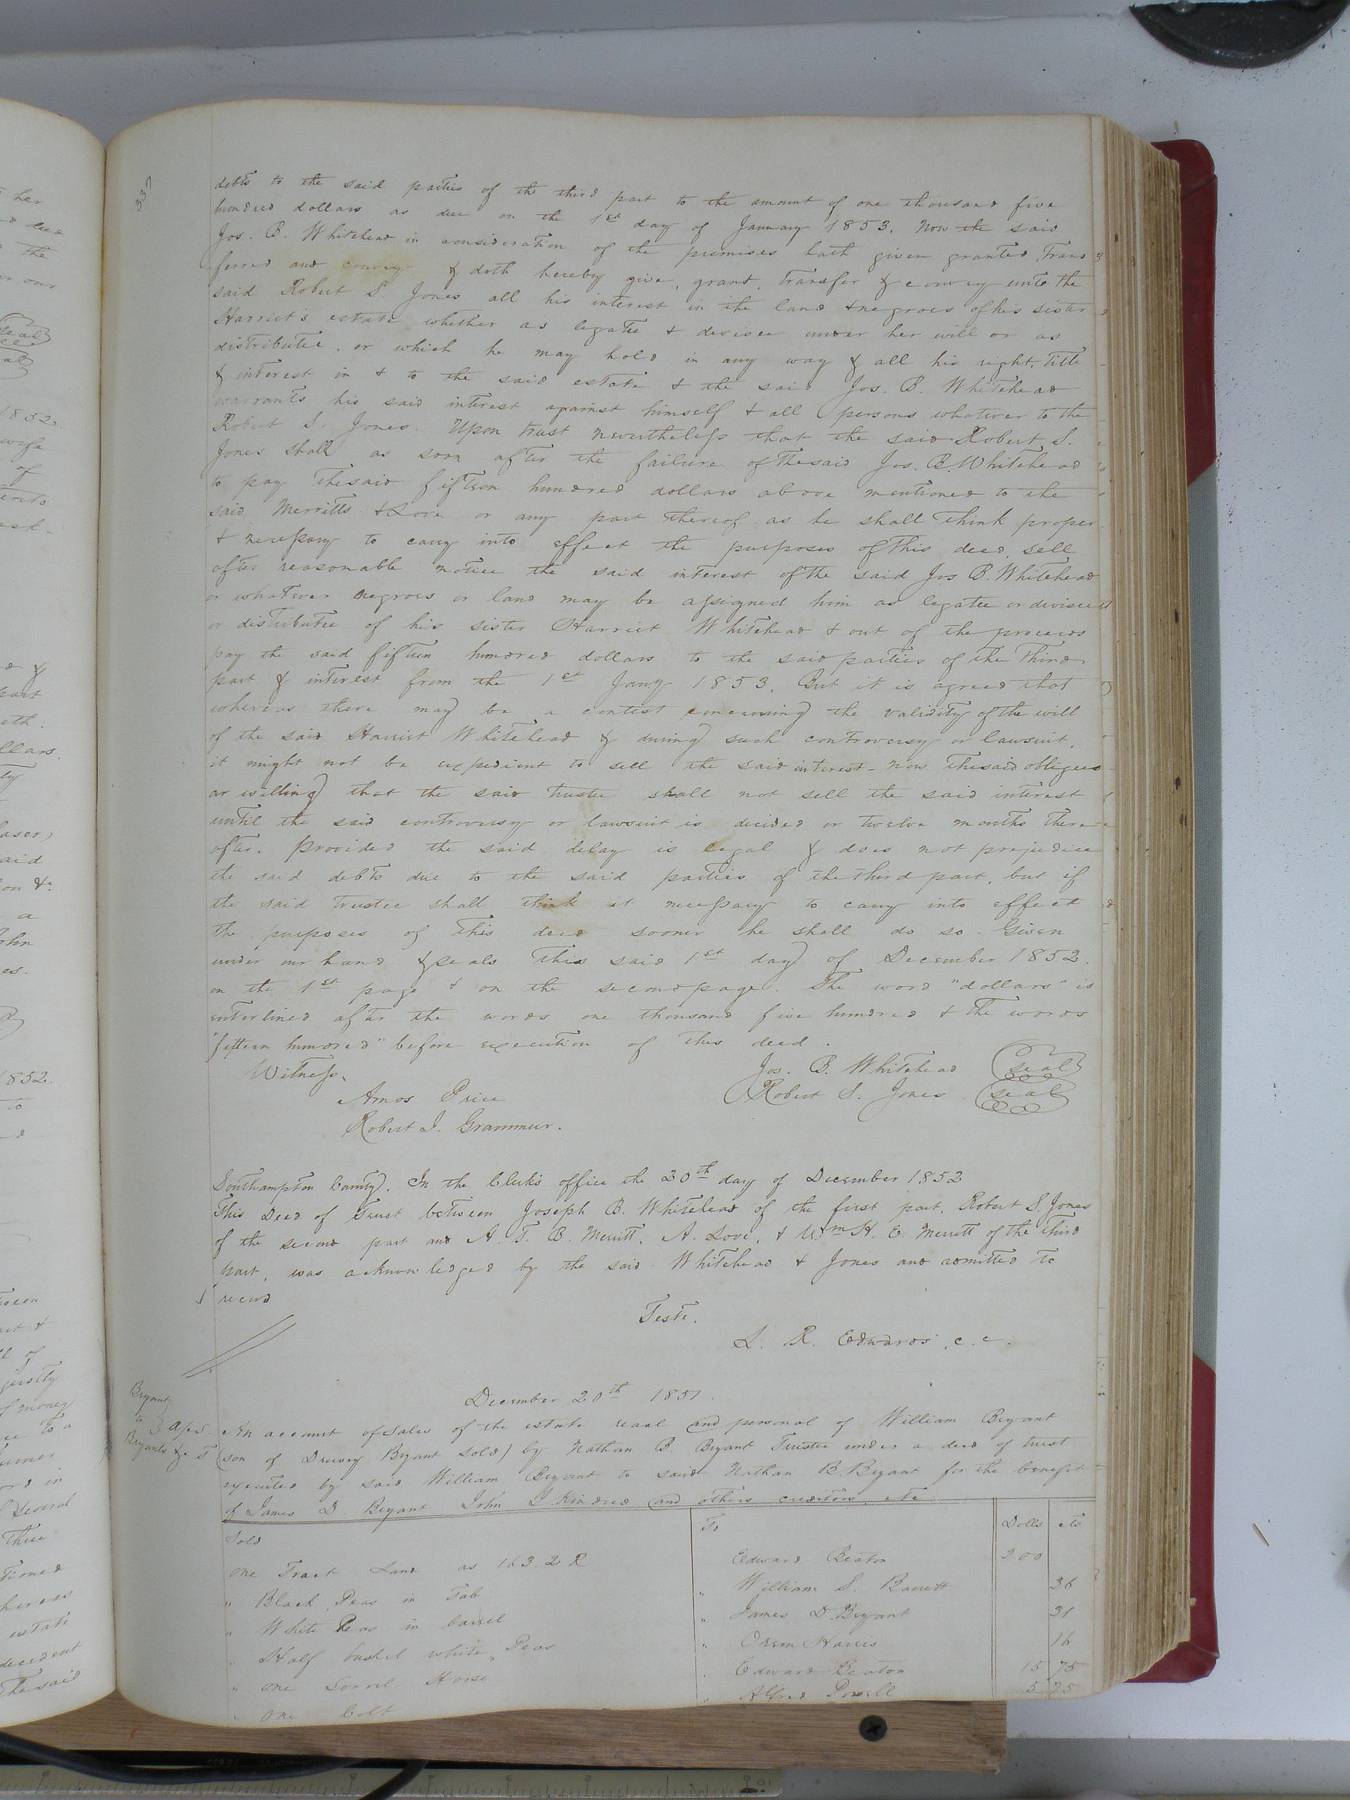 337
debts to the said parties of the third part to the amount of one thousand five
hundred dollars as due on the 1st day of January 1853. Now the said
Jos. B. Whitehead in consideration of the premises hath given granted, trans
ferred and convey & doth hereby give, grant, transfer & convey unto the
said Robert S. Jones all his interest in the land & negroes of his sister
Harriet's estate whether as legatee & devisee under her will or as
distributee, or which he may hold in any way & all his right, title
& interest in & to the said estate & the said Jos. B. Whitehead
warrants his said interest against himself & all persons whatever to the
Robert S. Jones. Upon trust nevertheless that the said Robert S.
Jones shall as soon after the failure of the said Jos. B. Whitehead
to pay the said fifteen hundred dollars above mentioned to the
said Merritts & Love or any part thereof as he shall think proper
& necessary to carry into effect the purposes of this deed, sell
after reasonable notice the said interest of the said Jos B. Whitehead
or whatever negroes or land may be assigned him as legatee or devisee
or distributee of his sister Harriet Whitehead & out of the proceeds
pay the said fifteen hundred dollars to the said parties of the third
part & interest from the 1st Jany 1853. But it is agreed that
whereas there may be a contest concerning the validity of the will
of the said Harriet Whitehead & during such controversy or lawsuit,
it might not be expedient to sell the said interest - now the said obligees
ar willing that the said trustee shall not sell the said interest
until the said controversy or lawsuit is decided or twelve months there
after. Provided the said delay is legal & does not prejudice
the said debts due to the said parties of the third part, but if
the said trustee shall think it necessary to carry into effect
the purposes of this deed sooner he shall do so. Given
under our hand & seals this said 1st day of December 1852.
on the 1st page & on the second page. The word "dollars" is
enterlined after the words one thousand five hundred & the words
"fifteen hundred" before execution of this deed.
Witness. Jos. B. Whitehead seal
Amos Price Robert S. Jones seal
Robert J. Grammer.
Southampton County. In the Clerk's office the 20th day of December 1852
This Deed of Trust between Joseph B. Whitehead of the first part, Robert S. Jones
of the second part and A. T. B. Merritt, A. Love, & Wm H. E. Merritt of the third
part, was acknowledged by the said Whitehead & Jones and admitted to
record
Teste.
L. R. Edwards. c. c.
December 20th 1851.
Bryant
to
Bryants
An account of sales of the estate real and personal of William Bryant
(son of Drewry Bryant sold) by Nathan B. Bryant Trustee under a deed of trust
executed by said William Bryant to said Nathan B. Bryant for the benefit
of James D Bryant John L. Kindred and others creditors, etc
Sold To Dolls cts
one Tract Land as 163. 2 R Edward Beaton 200
" Black Peas in Tub " William S. Barrett 36
" White Peas in barrel " James D. Bryant 31
" Half bushel white Peas " Orem Harris 16
" one Sorrel Horse " Edward Beaton 15 75
" one Colt " Alfred Powell 5 25